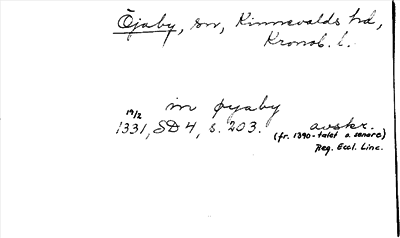 Öjaby, sn, Kinnevalds hd,
Kronob. l.
in øyaby
19/2
1331, SD 4, s. 203. avskr.
(fr. 1390-talet o. senare)
Reg. Eccl. Linc.